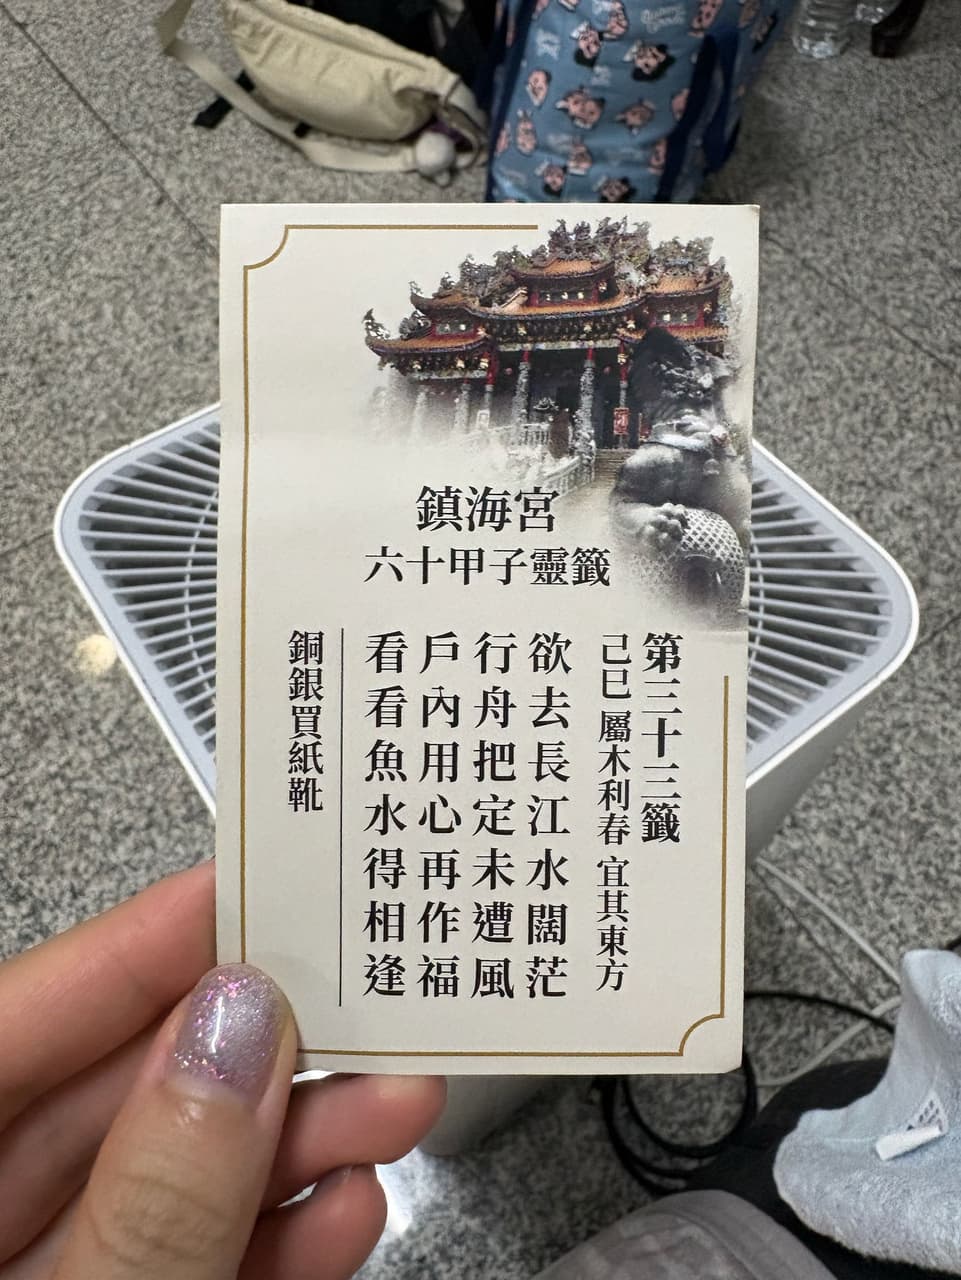 鎮海宮
六十甲子靈籤
第三十三籤
己巳 屬木利春 宜其東方
欲去長江水闊茫
行舟把定未遭風
戶內用心再作福
看看魚水得相逢
銅銀買紙靴